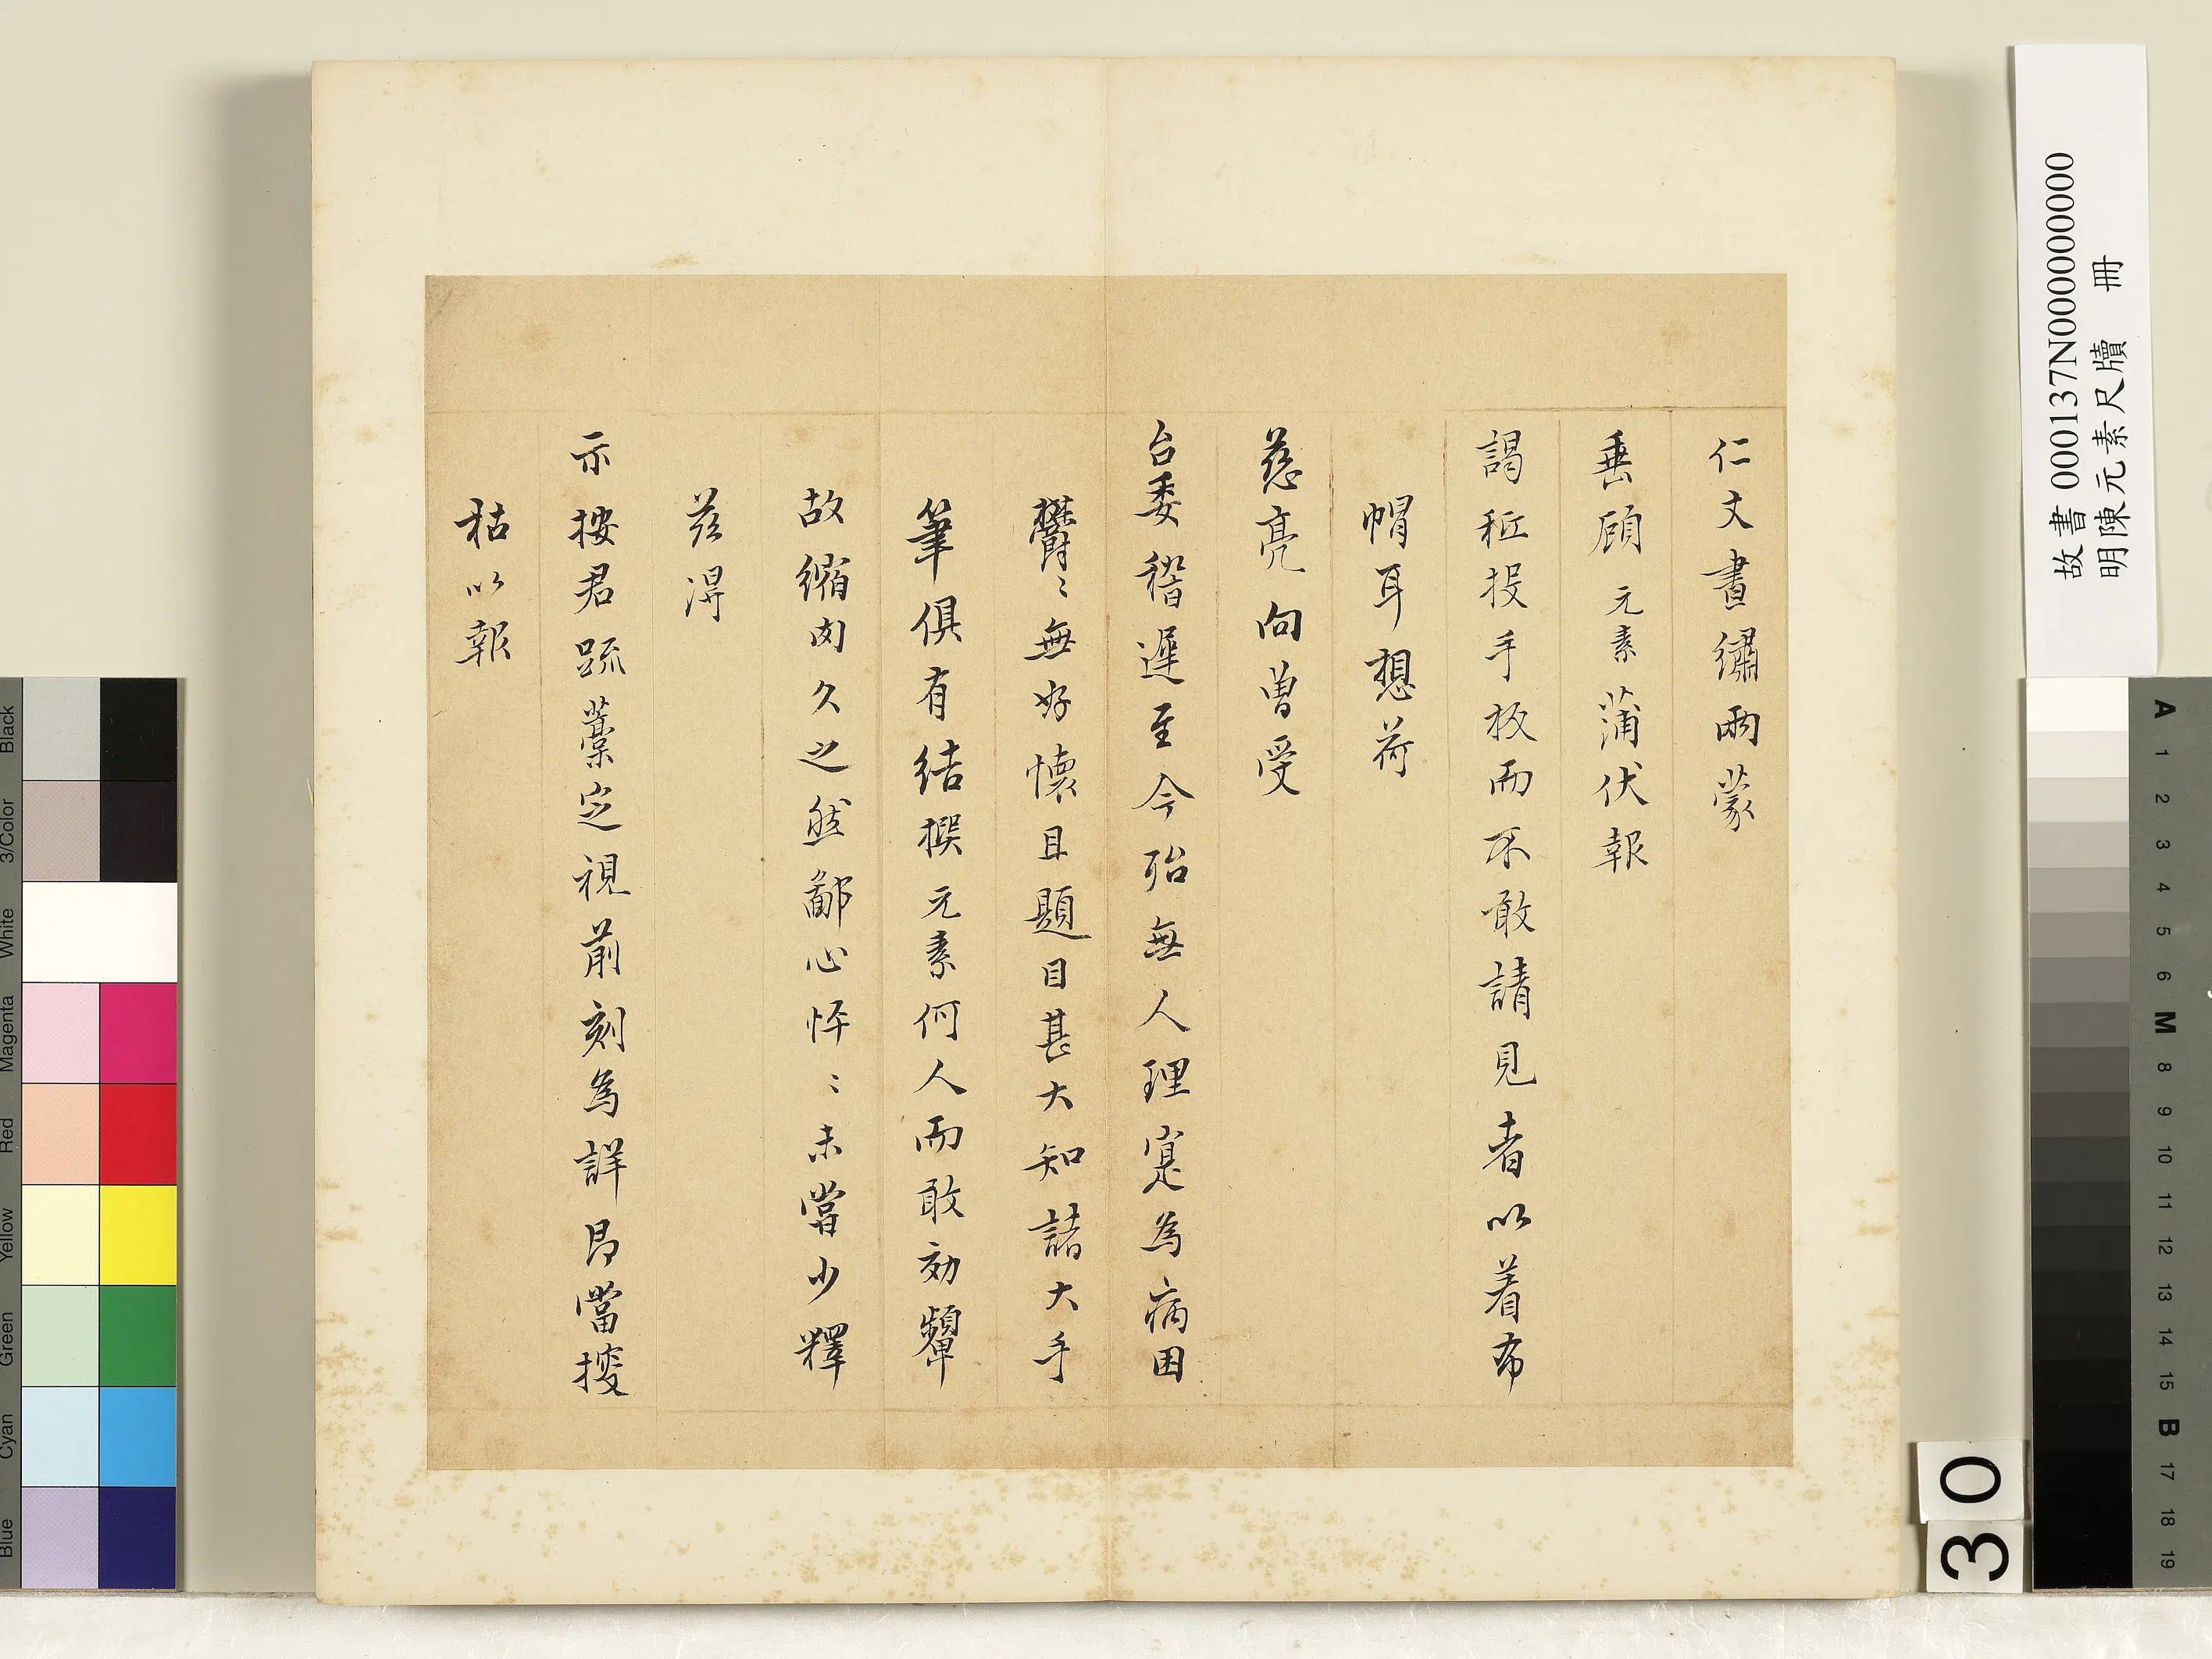 仁丈晝繡兩蒙
垂顧元素蒲伏報
謁秪投手板而不敢請見者以着布
帽耳想荷
慈亮向曽受
台委稽遲至今殆無人理寔為病困
欝〻無好懷且題目甚大知諸大手
筆俱有結撰元素何人而敢効顰
故縮肉久之然鄙心怦〻未嘗少釋
茲淂
示按君䟽藁定視前刻為詳即當搜
枯以報
故書000137N000000000
明陳元素尺牘 冊
30
A 1 2 3 4 5 6 M 8 9 10 11 12 13 14 15 B 17 18 19
Blue Cyan Green Yellow Red Magenta White 3/Color Black